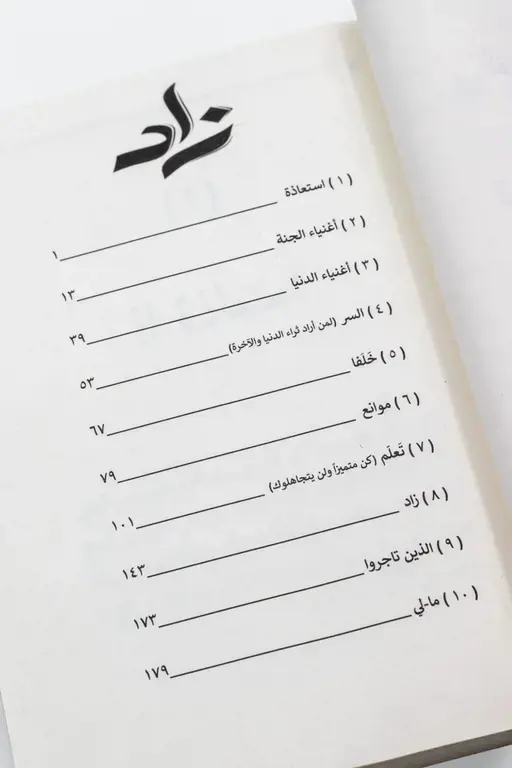 زاد
(١) استعاذة ١
(٢) أغنياء الجنة ١٣
(٣) أغنياء الدنيا ٣٩
(٤) السر (لمن أراد ثراء الدنيا والآخرة) ٥٣
(٥) خَلَفا ٦٧
(٦) موانع ٧٩
(٧) تَعلَم (كن متميزاً ولن يتجاهلوك) ١٠١
(٨) زاد ١٤٣
(٩) الذين تاجروا ١٧٣
(١٠) ما-لي ١٧٩